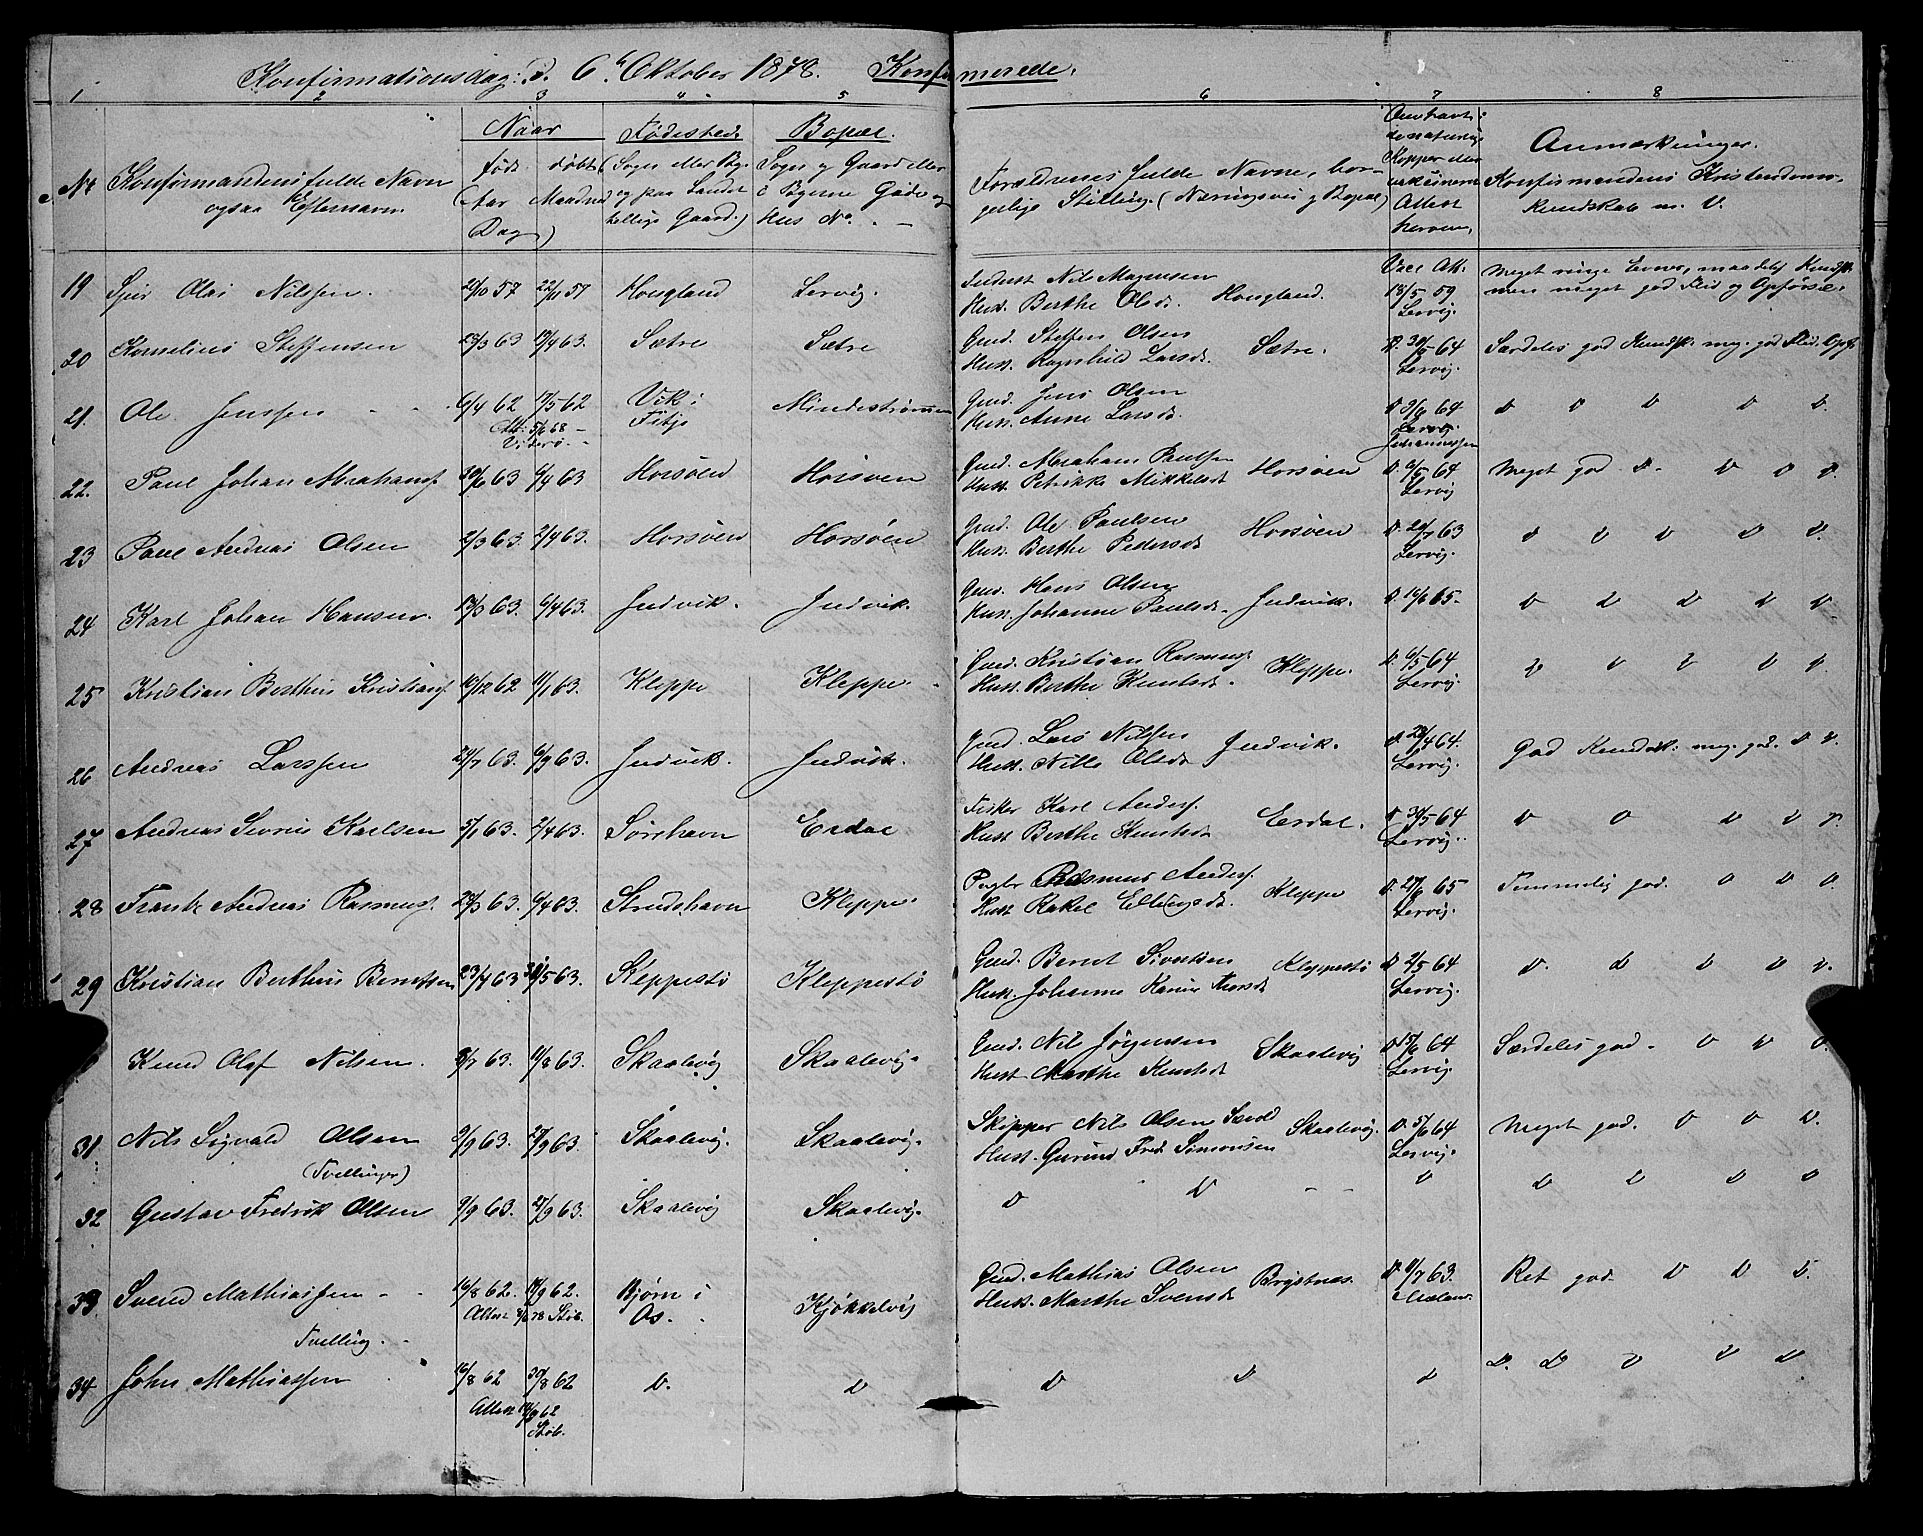 Konfirmationsdag: D. 6t Oktober 1878. Konfirmerede.
1 2 3 4 5 6 7 8
No Konfirmandens fulde Navn ogsaa Efternavn.
Naar
født døbt
(Aar Maaned Dag)
Fødested
(Sogn eller By og paa Landet tillige Gaard.)
Bopæl.
Sogn og Gaard eller i Byerne Gade og Hus No.
Forældrenes fulde Navne, borgerlige Stilling (Næringsvei og Bopæl)
Kopper eller vakcineret Attest herom,
Anmærkninger.
Konfirmandens Kristendomskundskab m. V.
19 Olai Nilssen. 57 57 Hougland Lervig. Inderst Nils Magnusen
Hust. Berthe Olsd. Hougland. Vacc. Att. 18/5 59 Lervig. Meget ringe Evner, maadelig Kundsk.
men meget god Flid og Opførsel.
20 Kornelius Steffensen 23/3 63 12/4 63. Sætre Sætre Gmd. Steffen Olsen
Hust. Ragnhild Larsd. Sætre. D. 64 Lervig. Særdeles god Kundsk. meg. god Flid. Opf.
21. Ole Jenssen 6/4 62 11/5 62 Vik i Fitje Mindestrømmen Gmd. Jens Olsen
Hust. Anne Larsd. D 64 Lervig. D D D D D.
Att. 5/6 68 Viderø.
22. Paul Johan Abrahams. 63 63 Horsøen Horsøen Gmd. Abraham Paulsen
Hust. Petrikke Mikkelsd. Horsøen D. 6/5 64 Lervig Meget god D. D D D.
23 Paul Andreas Olsen 2/3 63. 2/4 63. Horsøen Horsøen Gmd. Ole Paulsen
Hust. Berthe Pedersd. Horsøen D. 63 Lervig. D D D D D.
24 Karl Johan Hansen. 63. 6/4 63. Indvik. Indvik. Gmd. Hans Olsen
Hust. Johanne Paulsd. Indvik. D. 65. D D D D D
25 Kristian Berthius Kristians. 12 62 11/1 63. Kleppe Kleppe. Gmd. Kristian Rasmus.
Hust. Berthe Knutsd. Kleppe. D. 6/5 64 Lervig. D D D D D
26 Andreas Larssen 24/7 63. 6/9 63. Indvik. Indvik. Gmd. Lars Nilssen
Hust. Nille Olsd. Indvik. D. 4 64. Lervig. God Kundsk. meg. god. D D.
27 Andreas Severin Karlsen 5/1 63. 2/4 63. Sørehavn Erdal Fisker Karl Anders.
Hust. Berthe Knutsd. Erdal. D 5 64 Lervig. D D D D D.
28 Frantz Andreas Rasmus. 3 63. 6/4 63. Strudshavn Kleppe. Rasmus Anders.
Hust Rakel Ellingsd. Kleppe D. 65 Lervig. Temmelig god. D D D.
29 Kristian Berthius Berntsen 23/4 63 31/5 63. Kleppestø Kleppestø Gmd. Bernt Sivertsen
Hust. Johanne Karine Thorsd. Kleppestø D 2/5 64 Lervig. D. D D D D.
Knud Olaf Nilsen. 7 63. 8 63. Skaalevig Skaalevig. Gmd. Nils Jørgensen
Hust Marthe Knutsd. Skaalevig D 64 Lervig. Særdeles god. D D D.
31 Nils Sigvald Olsen 9/9 63. 27/9 63. Skaalevig. Skaalevig. Skipper Nils Olsen
Hust. Gurine Fred. Simonsen Skaalevig. D. 64 Lervig. Meget god. D D D.
(Tvellinger)
32 Gustav Fredrik Olsen 9/9 63. 27/9 63. Skaalevig Skaalevig. D D D D D D D D
33. Svend Mathiassen 16/8 62. 9 62. Bjørn i Os. Kjøkkelvig Gmd. Mathias Olsen
Hust. Marthe Svensd. D. 7 63. Ret god D D D.
Attest 78 Støb.
Tvelling.
34 John Mathiassen 16/8 62 30/8 62 D. D D D D D. D D D D
Attest 9 62 Støb.